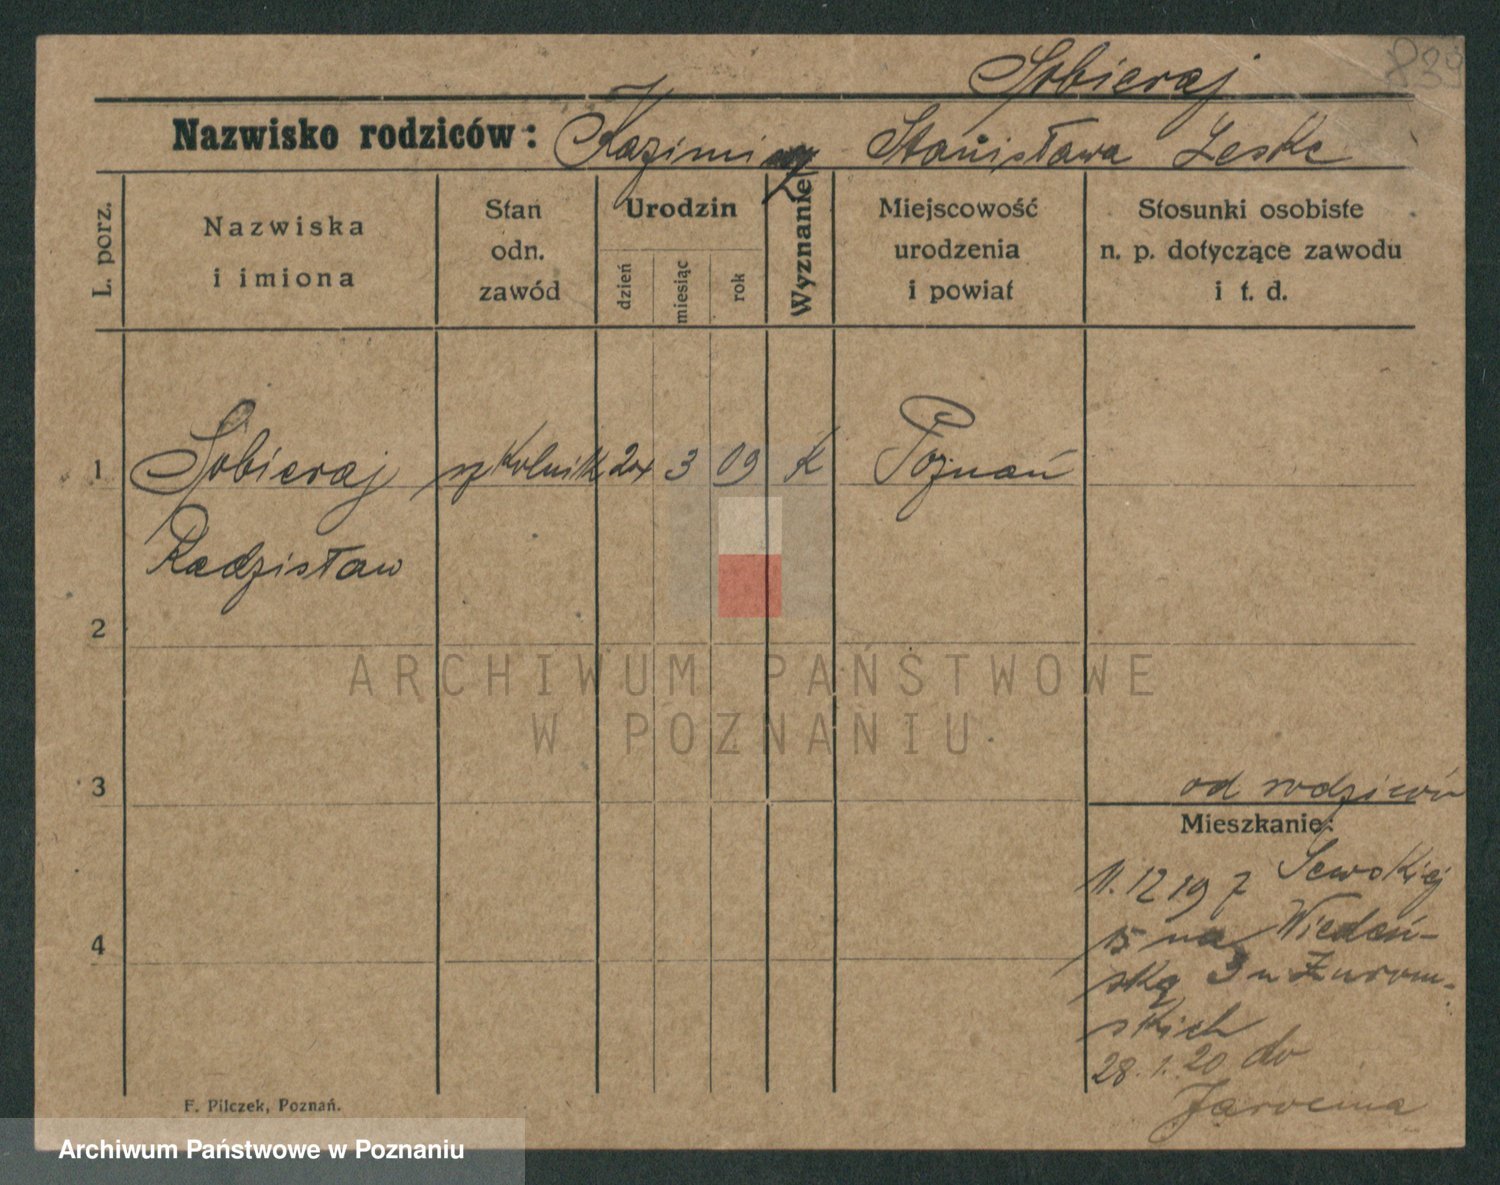 839
Sobieraj
Nazwisko rodziców: Kazimierz Stanisława Leske
L. porz.
Nazwiska
i imiona
Stan
odn.
zawód
Urodzin
dzień
miesiąc
rok
Wyznanie
Miejscowość
urodzenia
i powiat
Stosunki osobiste
n. p. dotyczące zawodu
i t. d.
1 Sobieraj szkolnik 24 3 09 K Poznań
Radzisław
2
ARCHIWUM PAŃSTWOWE
W POZNANIU
3
od rodziców
Mieszkanie:
11.12 19 z Sewskiej
15 na Wiedeń-
4
ską 3 u Żurom-
skich
28.1.20 do
F. Pilczek, Poznań.
Archiwum Państwowe w Poznaniu